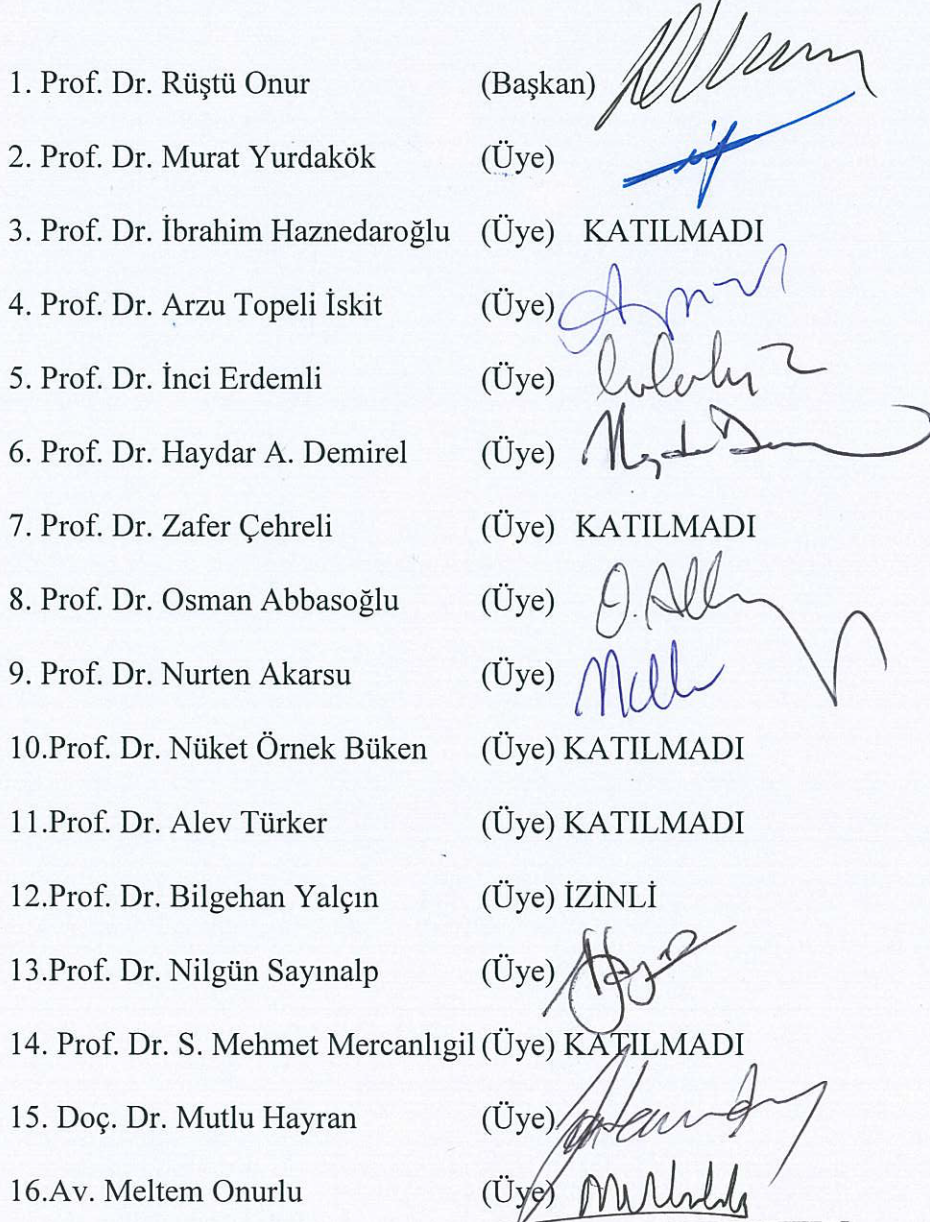 1. Prof. Dr. Rüştü Onur (Başkan)
2. Prof. Dr. Murat Yurdakök (Üye)
3. Prof. Dr. İbrahim Haznedaroğlu (Üye) KATILMADI
4. Prof. Dr. Arzu Topeli İskit (Üye)
5. Prof. Dr. İnci Erdemli (Üye)
6. Prof. Dr. Haydar A. Demirel (Üye)
7. Prof. Dr. Zafer Çehreli (Üye) KATILMADI
8. Prof. Dr. Osman Abbasoğlu (Üye)
9. Prof. Dr. Nurten Akarsu (Üye)
10.Prof. Dr. Nüket Örnek Büken (Üye) KATILMADI
11.Prof. Dr. Alev Türker (Üye) KATILMADI
12.Prof. Dr. Bilgehan Yalçın (Üye) İZİNLİ
13.Prof. Dr. Nilgün Sayınalp (Üye)
14. Prof. Dr. S. Mehmet Mercanlıgil (Üye) KATILMADI
15. Doç. Dr. Mutlu Hayran (Üye)
16.Av. Meltem Onurlu (Üye)